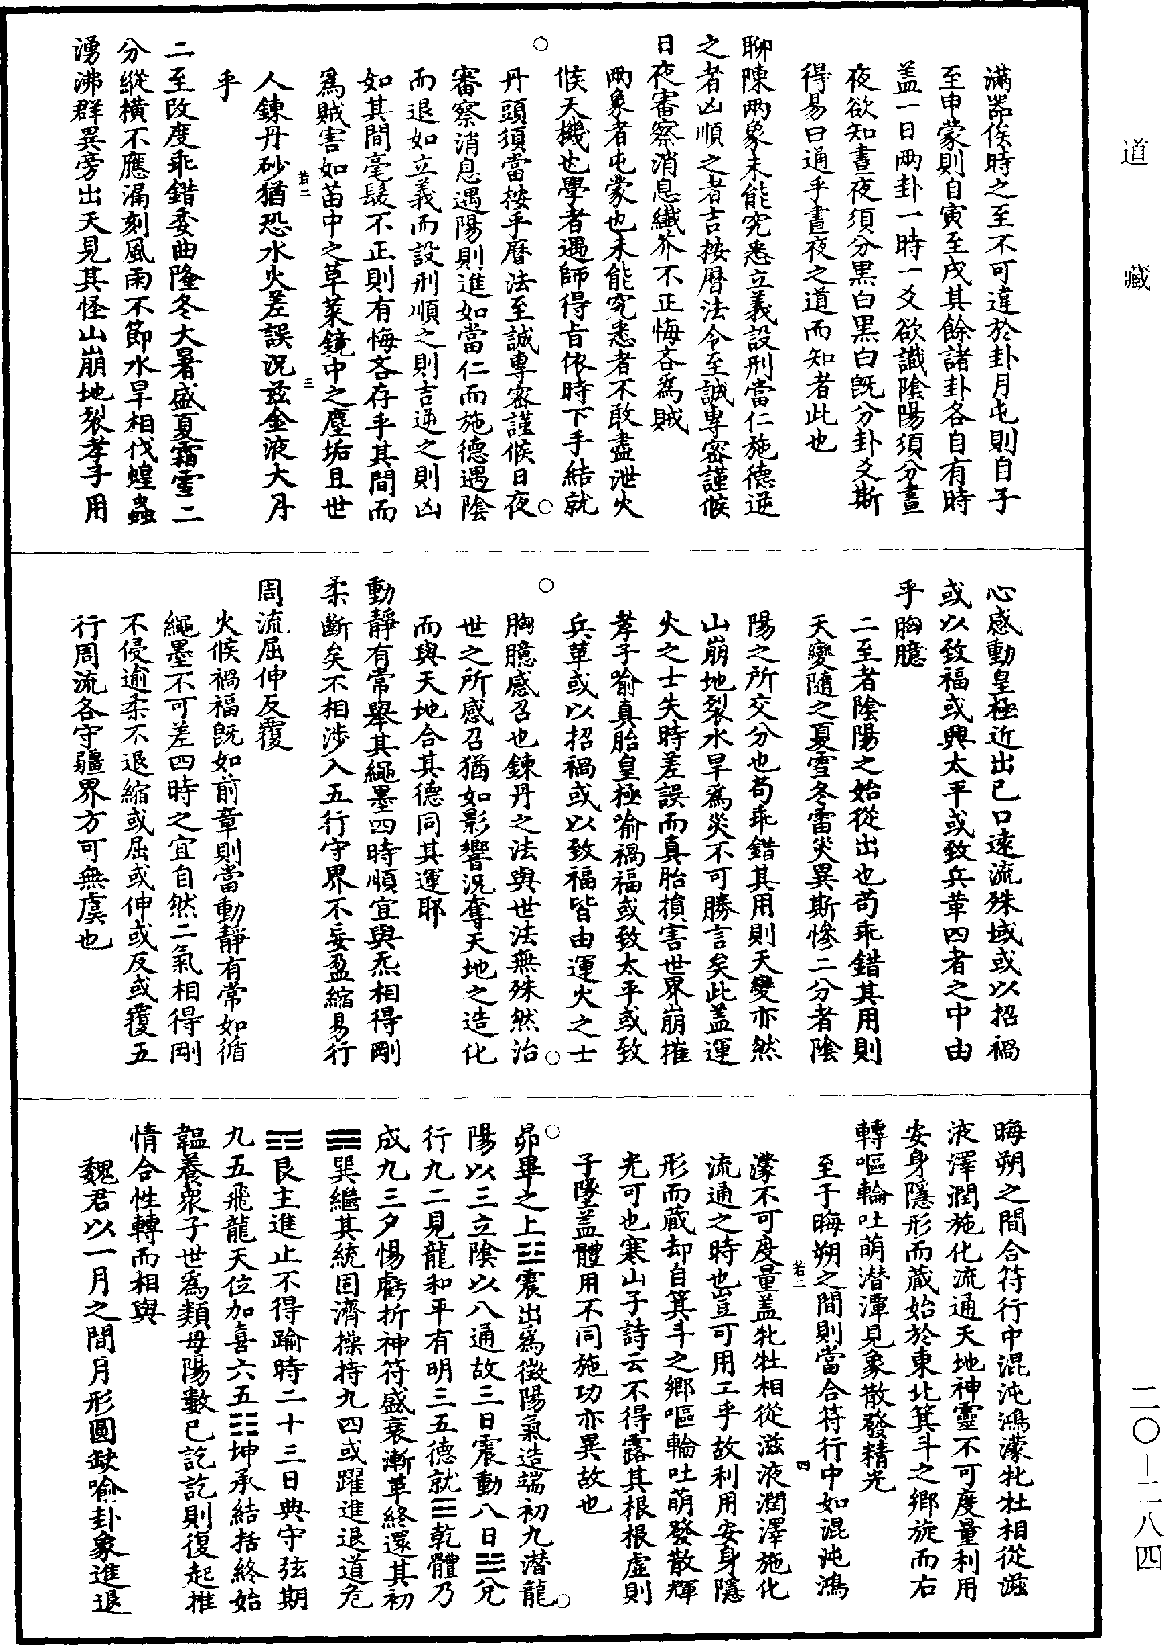 道藏
滿器俟時之至不可違於卦月屯則自子
至申蒙則自寅至戌其餘諸卦各自有時
蓋一日兩卦一時一爻欲識陰陽須分晝
夜欲知晝夜須分黑白黑白既分卦爻斯
得易曰通乎晝夜之道而知者此也
聊陳兩象未能究悉立義設刑當仁施德逆
之者凶順之者吉按曆法令至誠專密謹候
日夜審察消息纖芥不正悔吝為賊
兩象者屯蒙也未能究悉者不敢盡泄火
候天機也學者遇師得旨依時下手結就
丹頭須當按乎曆法至誠專密謹候日夜
審察消息遇陽則進如當仁而施德遇陰
而退如立義而設刑順之則吉逆之則凶
如其間毫髮不正則有悔吝存乎其間而
為賊害如苗中之草菜鏡中之塵垢且世
若二
三
人鍊丹砂猶恐水火差誤況茲金液大丹
乎
二至改度乖錯委曲隆冬大暑盛夏霜雪二
分縱橫不應漏刻風雨不節水旱相伐蝗蟲
湧沸群異旁出天見其怪山崩地裂孝子用
心感動皇極近出己口遠流殊域或以招禍
或以致福或興太平或致兵革四者之中由
乎胸臆
二至者陰陽之始從出也苟乖錯其用則
天變隨之夏雪冬雷災異斯慘二分者陰
陽之所交分也苟乖錯其用則天變亦然
山崩地裂水旱為災不可勝言矣此蓋運
火之士失時差誤而真胎損害世界崩摧
孝子喻真胎皇極喻禍福或致太平或致
兵革或以招禍或以致福皆由運火之士
胸臆感召也鍊丹之法與世法無殊然治
世之所感召猶如影響況奪天地之造化
而與天地合其德同其運耶
動靜有常舉其繩墨四時順宜與炁相得剛
柔斷矣不相涉入五行守界不妄盈縮易行
周流屈伸反覆
火候禍福既如前章則當動靜有常如循
繩墨不可差四時之宜自然二氣相得剛
不侵逾柔不退縮或屈或伸或反或覆五
行周流各守疆界方可無虞也
晦朔之間合符行中混沌鴻濛牝牡相從滋
液澤潤施化流通天地神靈不可度量利用
安身隱形而藏始於東北箕斗之鄉旋而右
轉嘔輪吐萌潛潭見象散發精光
至于晦朔之間則當合符行中如混沌鴻
若二
四
濛不可度量蓋牝牡相從滋液潤澤施化
流通之時也豈可用工乎故利用安身隱
形而藏却自箕斗之鄉嘔輪吐萌發散輝
光可也寒山子詩云不得露其根根虛則
子墜蓋體用不同施功亦異故也
昴畢之上☳震出為徵陽氣造端初九潛龍
陽以三立陰以八通故三日震動八日☱兌
行九二見龍和平有明三五德就☰乾體乃
成九三夕惕虧折神符盛衰漸革終還其初
☴巽繼其統固濟操持九四或躍進退道危
☶艮主進止不得踰時二十三日典守弦期
九五飛龍天位加喜六五☷坤承結括終始
韞養衆子世為類母陽數已訖訖則復起推
情合性轉而相與
魏君以一月之間月形圓缺喻卦象進退
二〇—二八四